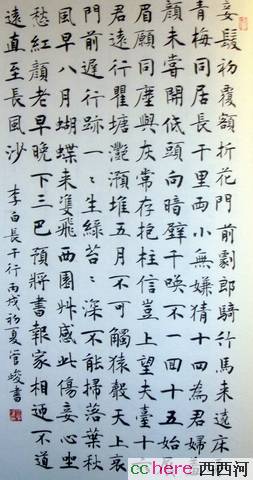 妾髮初覆額折花門前劇郎騎竹馬来遶床弄
青梅同居長干里兩小無嫌猜十四為君婦羞
顔未嘗開低頭向暗壁千唤不一回十五始展
眉願同塵與灰常存抱柱信豈上望夫臺十六
君遠行瞿塘灧澦堆五月不可觸猿聲天上哀
門前遲行跡一々生綠苔々深不能掃落葉秋
風早八月蝴蝶来雙飛西園草感此傷妾心坐
愁紅顔老早晚下三巴預將書報家相迎不道
遠直至長風沙
李白長干行丙戌初夏管峻書
cchere 西西河